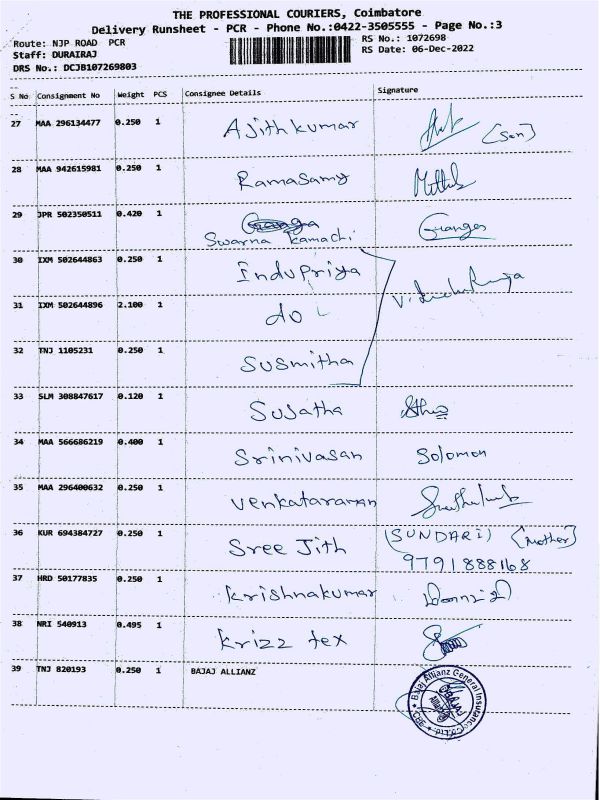 THE PROFESSIONAL COURIERS, Coimbatore
Delivery Runsheet - PCR - Phone No.:0422-3505555 - Page No.:3
Route: NJP ROAD PCR
RS No.: 1072698
Staff: DURAIRAJ
RS Date: 06-Dec-2022
DRS No.: DCJB107269803
S No Consignment No Weight PCS Consignee Details Signature
27 MAA 296134477 0.250 1 Ajith kumar [Son]
28 MAA 942615981 0.250 1 Ramasamy
29 JPR 502350511 0.420 1 Ganga Swarna Kamachi
30 IXM 502644863 0.250 1 Indupriya
31 IXM 502644896 2.100 1 do
32 TNJ 1105231 0.250 1 Susmitha
33 SLM 308847617 0.120 1 Sujatha
34 MAA 566686219 0.400 1 Srinivasan Solomon
35 MAA 296400632 0.250 1 Venkataraman
36 KUR 694384727 0.250 1 Sree Jith (SUNDARI) [Mother]
9791888168
37 HRD 50177835 0.250 1 Krishnakumar
38 NRI 540913 0.495 1 Krizz tex
39 TNJ 820193 0.250 1 BAJAJ ALLIANZ
Bajaj Allianz General Insurance Co. Ltd. * CBE *